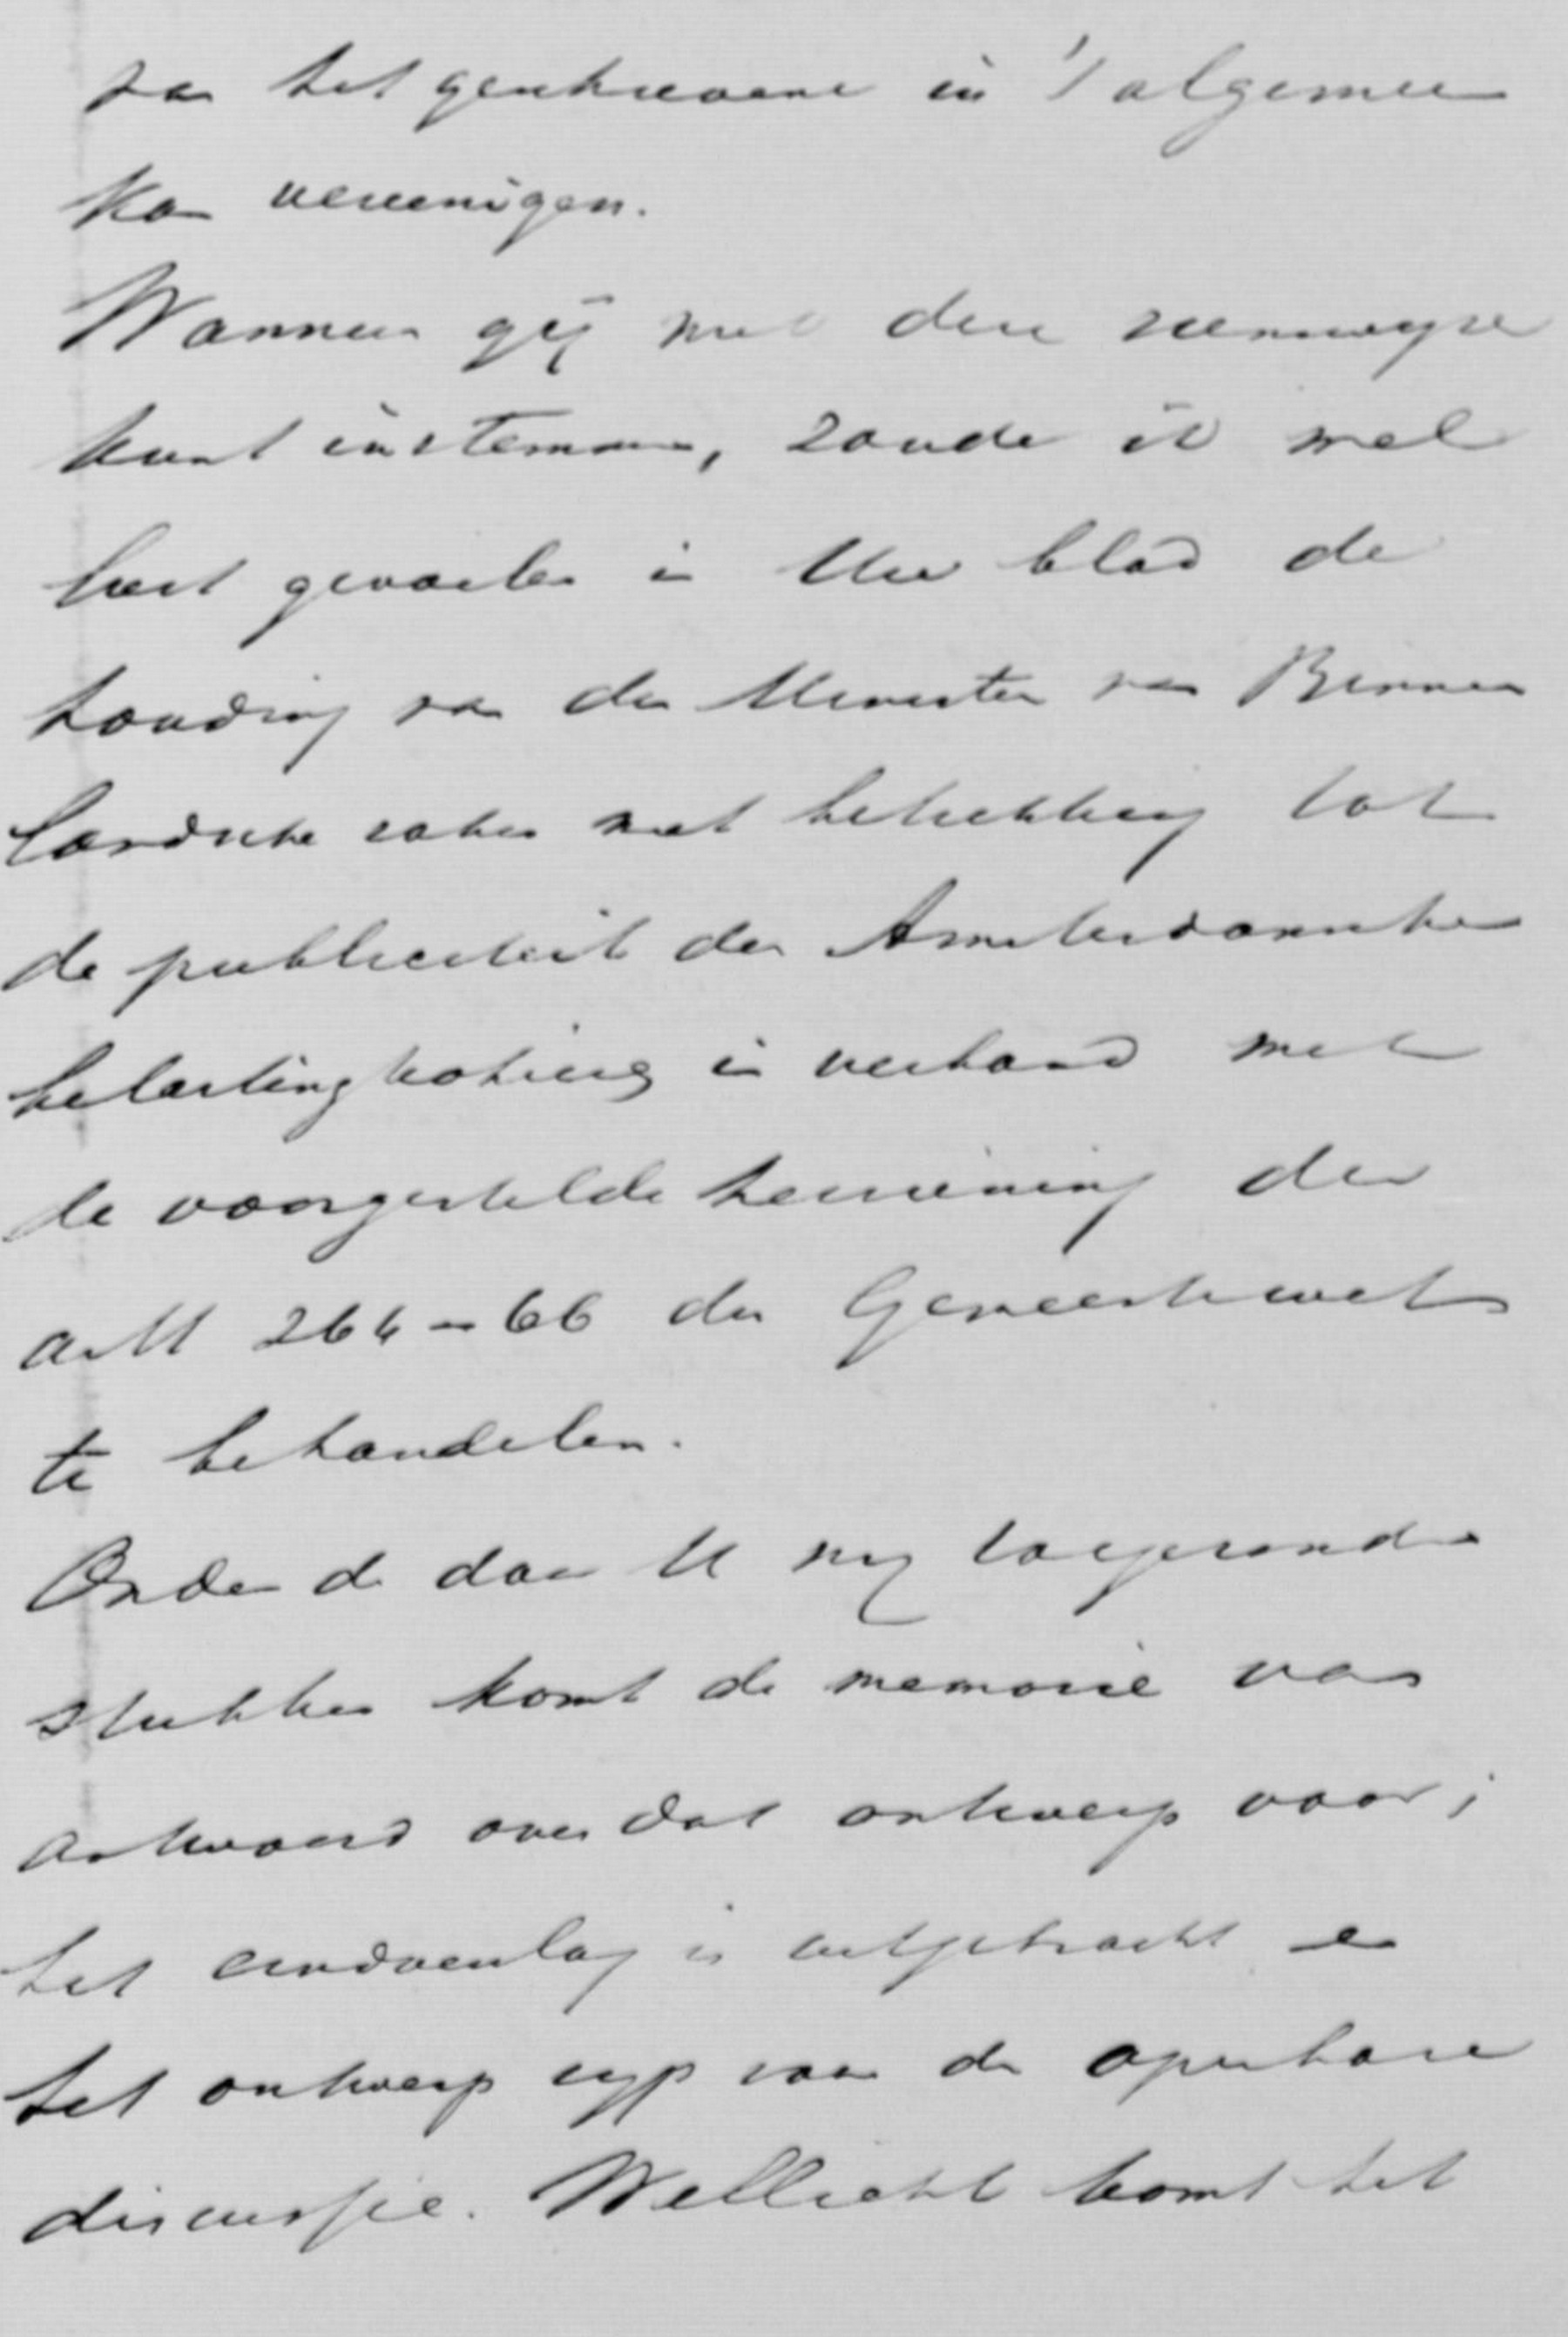 van het geschrevene in 't algemeen
kan vereenigen.
Wanneer gij met deze zienswijze
kunt instemmen, zoude ik wel
lust gevoelen in Uw blad de
houding van den Minister van Binnen
landsche zaken met betrekking tot
de publiciteit der Amsterdamsche
belastingkohieren in verband met
de voorgestelde herziening der
artt 264-66 der Gemeentewet
te behandelen.
Onder de door U mij toegezonden
stukken komt de memorie van
antwoord over dat ontwerp voor;
het eindverslag is uitgebracht en
het ontwerp rijp voor de openbare
discussie. Wellicht komt het